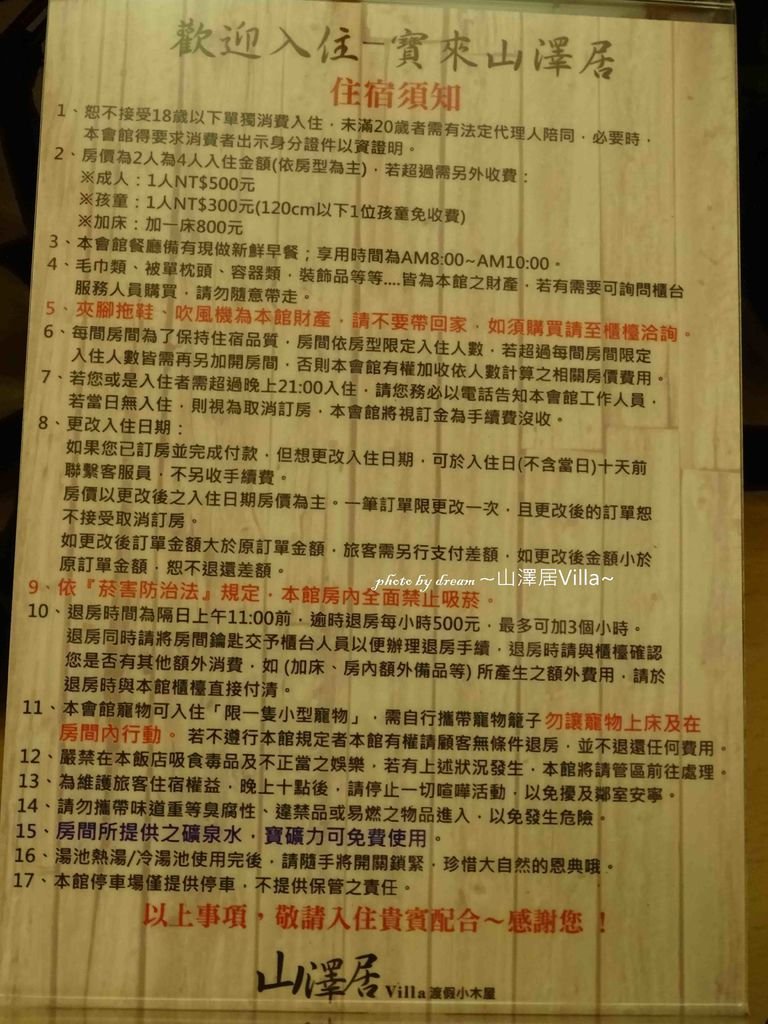 歡迎入住-寶來山澤居
住宿須知
1、恕不接受18歲以下單獨消費入住，未滿20歲者需有法定代理人陪同，必要時，
本會館得要求消費者出示身分證件以資證明。
2、房價為2人為4人入住金額(依房型為主)，若超過需另外收費：
※成人：1人NT$500元
※孩童：1人NT$300元(120cm以下1位孩童免收費)
※加床：加一床800元
3、本會館餐廳備有現做新鮮早餐；享用時間為AM8:00~AM10:00。
4、毛巾類、被單枕頭、容器類，裝飾品等等....皆為本館之財產，若有需要可詢問櫃台
服務人員購買，請勿隨意帶走。
5、夾腳拖鞋、吹風機為本館財產，請不要帶回家，如須購買請至櫃檯洽詢。
6、每間房間為了保持住宿品質，房間依房型限定入住人數，若超過每間房間限定
入住人數皆需再另加開房間，否則本會館有權加收依人數計算之相關房價費用。
7、若您或是入住者需超過晚上21:00入住，請您務必以電話告知本會館工作人員，
若當日無入住，則視為取消訂房，本會館將視訂金為手續費沒收。
8、更改入住日期：
如果您已訂房並完成付款，但想更改入住日期，可於入住日(不含當日)十天前
聯繫客服員，不另收手續費。
房價以更改後之入住日期房價為主。一筆訂單限更改一次，且更改後的訂單恕
不接受取消訂房。
如更改後訂單金額大於原訂單金額，旅客需另行支付差額，如更改後金額小於
原訂單金額，恕不退還差額。
photo by dream ～山澤居Villa~
9、依『菸害防治法』規定，本館房內全面禁止吸菸。
10、退房時間為隔日上午11:00前，逾時退房每小時500元，最多可加3個小時。
退房同時請將房間鑰匙交予櫃台人員以便辦理退房手續，退房時請與櫃檯確認
您是否有其他額外消費，如 (加床、房內額外備品等) 所產生之額外費用，請於
退房時與本館櫃檯直接付清。
11、本會館寵物可入住「限一隻小型寵物」，需自行攜帶寵物籠子 勿讓寵物上床及在
房間內行動。若不遵行本館規定者本館有權請顧客無條件退房，並不退還任何費用。
12、嚴禁在本飯店吸食毒品及不正當之娛樂，若有上述狀況發生，本館將請管區前往處理。
13、為維護旅客住宿權益，晚上十點後，請停止一切喧嘩活動，以免擾及鄰室安寧。
14、請勿攜帶味道重等臭腐性、違禁品或易燃之物品進入，以免發生危險。
15、房間所提供之礦泉水，寶礦力可免費使用。
16、湯池熱湯/冷湯池使用完後，請隨手將開關鎖緊，珍惜大自然的恩典哦。
17、本館停車場僅提供停車，不提供保管之責任。
以上事項，敬請入住貴賓配合～感謝您！
山澤居 Villa 渡假小木屋